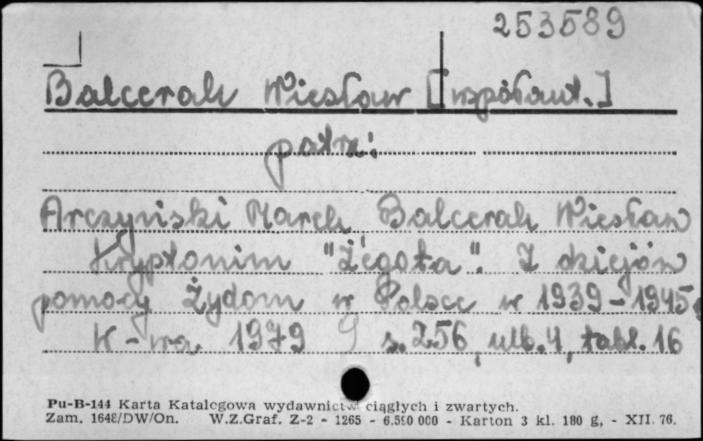 253589
Balcerak Wiesław [współaut.]
patrz:
Arczyński Marek, Balcerak Wiesław
Kryptonim "Żegota". Z dziejów
pomocy Żydom w Polsce w 1939-1945.
W-wa 1979 s. 256, ulb. 4, tabl. 16
Pu-B-144 Karta Katalogowa wydawnictw ciągłych i zwartych.
Zam. 1648/DW/On. W.Z.Graf. Z-2 - 1265 - 6.500 000 - Karton 3 kl. 180 g, - XII. 76.